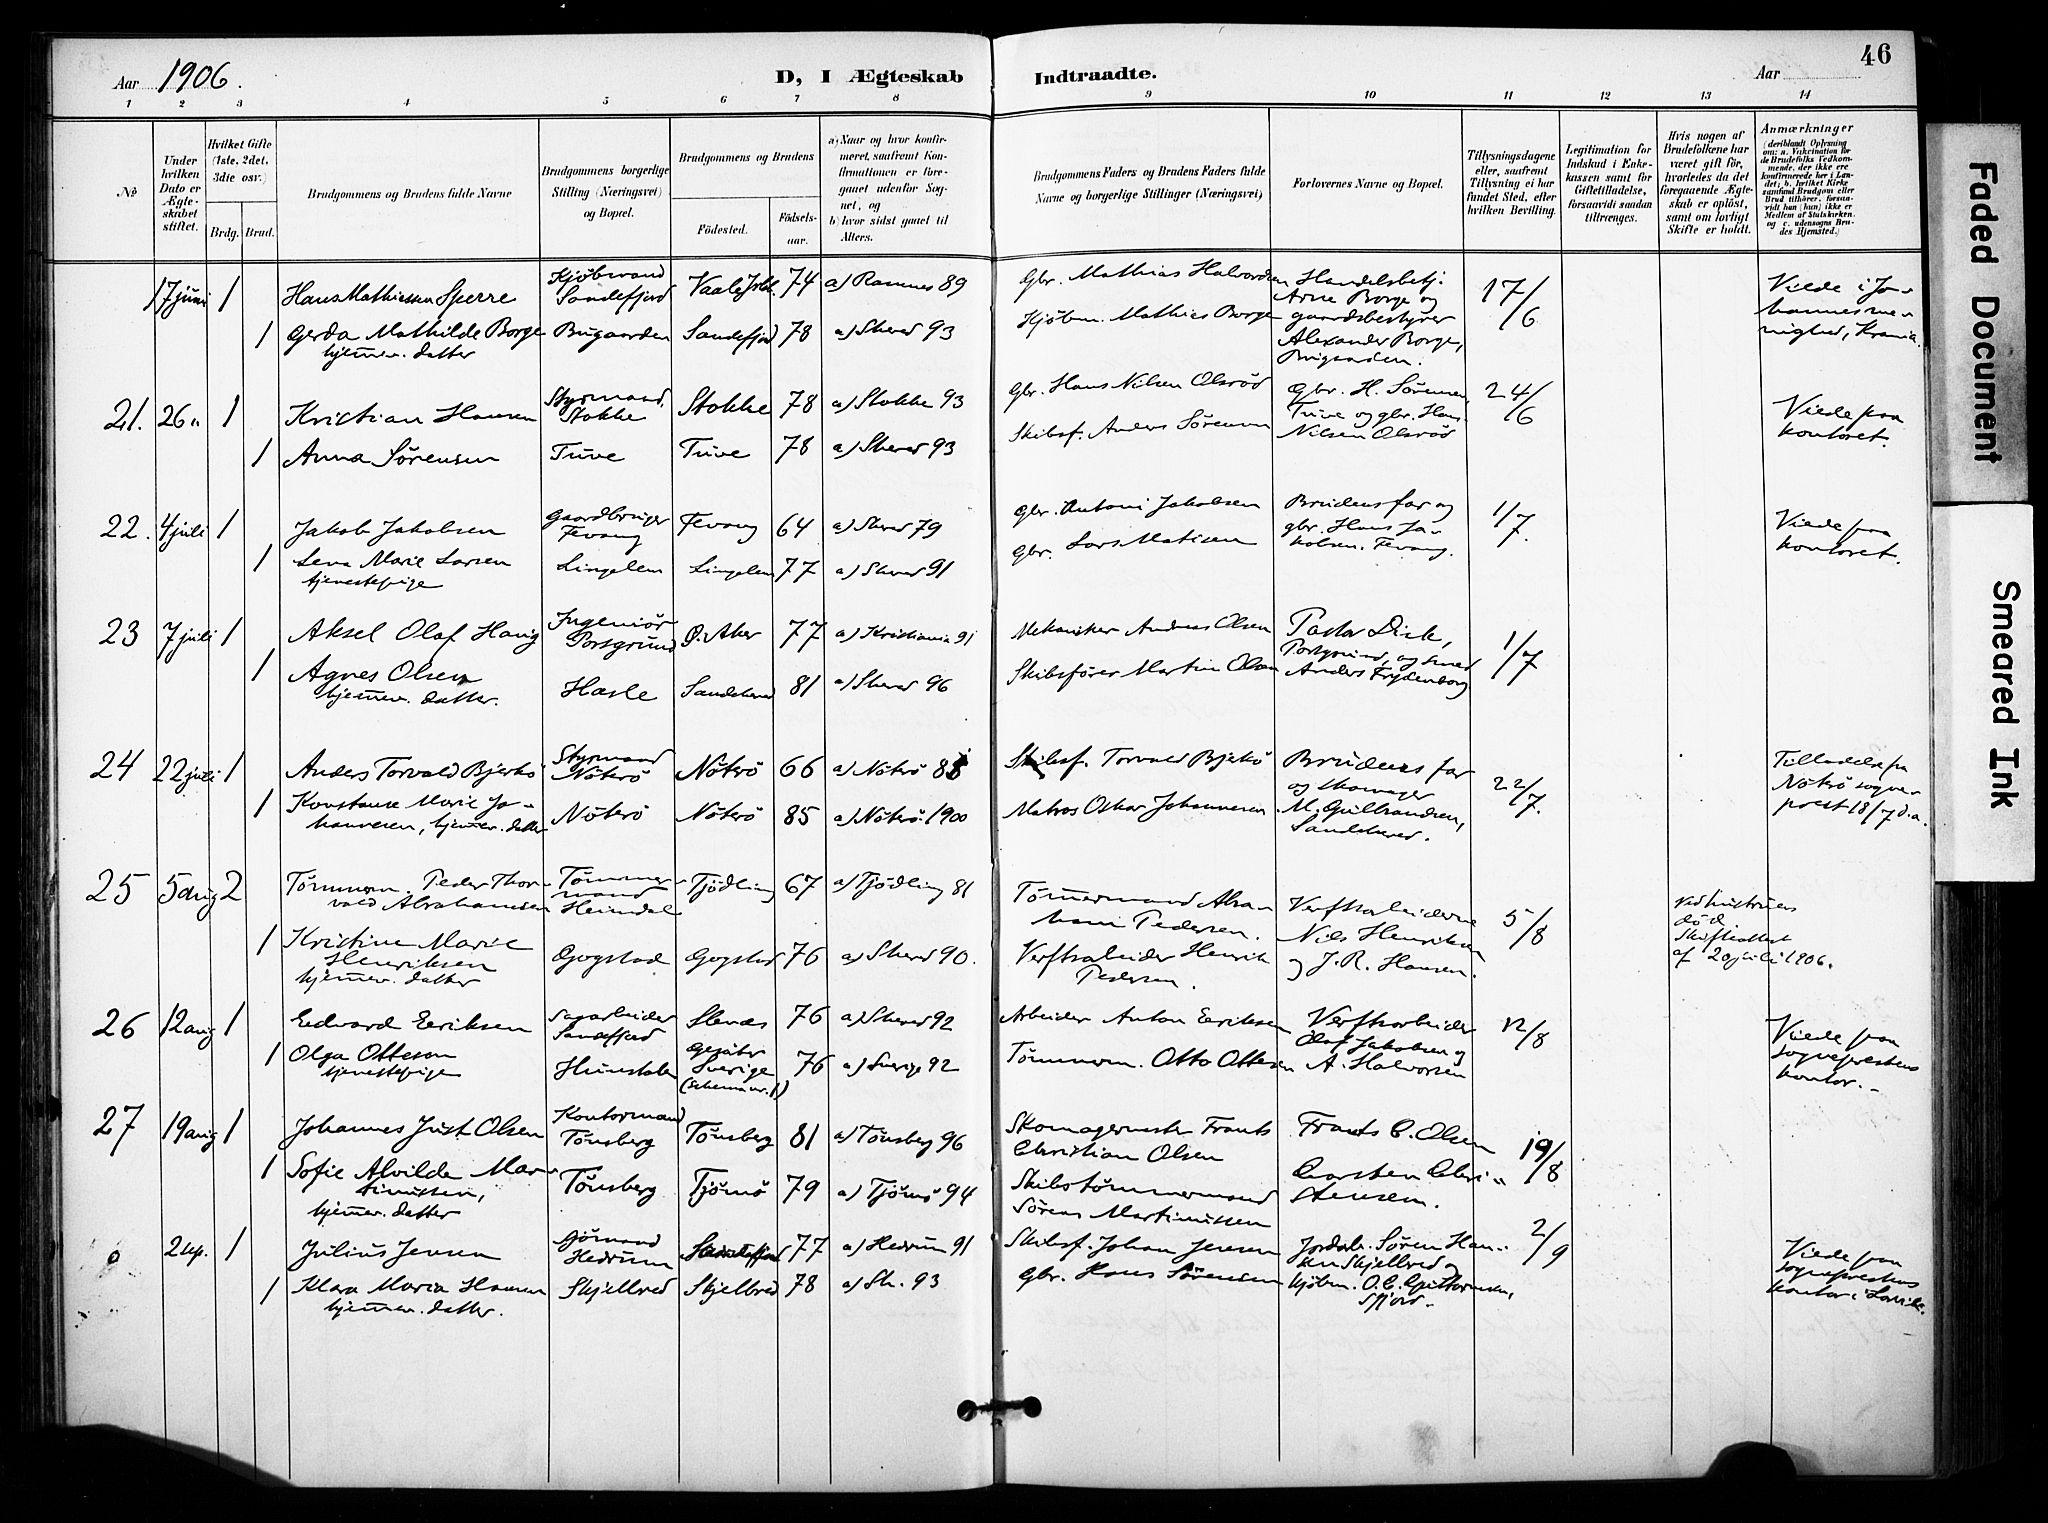 Aar 1906.
D, I Ægteskab Indtraadte.
Aar
46
1 2 3 4 5 6 7 8 9 10 11 12 13 14
No
Under hvilken Dato er Ægteskabet stiftet.
Hvilket Gifte (1ste, 2det, 3die osv.)
Brdg. Brud.
Brudgommens og Brudens fulde Navne
Brudgommens borgerlige Stilling (Næringsvei) og Bopæl.
Brudgommens og Brudens
Födested. Födselsaar.
a) Naar og hvor konfirmeret, saafremt Konfirmationen er foregaaet udenfor Sognet, og
b) hvor sidst gaaet til Alters.
Brudgommens Faders og Brudens Faders fulde Navne og borgerlige Stillinger (Næringsvei)
Forlovernes Navne og Bopæl.
Tillysningsdagene eller, saafremt Tillysning ei har fundet Sted, efter hvilken Bevilling.
Legitimation for Indskud i Enkekassen samt for Giftetilladelse, forsaavidt saadan tiltrænges.
Hvis nogen af Brudefolkene har været gift för, hvorledes da det foregaaende Ægteskab er oplöst, samt om lovligt Skifte er holdt.
Anmærkninger (deriblandt Oplysning om: a. Vaksination for de Brudefolks Vedkommende, der ikke ere konfirmerede her i Landet; b. hvilket Kirkesamfund Brudgom eller Brud tilhörer, forsaavidt han (hun) ikke er Medlem af Statskirken, og c. udensogns Brudes Hjemsted.)
17 juni 1 Hans Mathiesen Sperre Kjøbmand Sandefjord Vaale 74 a) Ramnes 89 Gbr. Mathias Halvorsen Handelsbetj. Arne Borge og 17/6 Viede i Johannesmenighed, Krania.
1 Gerda Mathilde Borge hjemmev. datter Bugaarden Sandefjord 78 a) Sherred 93 Kjøbm. Mathias Borge gaardsbestyrer Alexander Borge, Bugaarden.
21. 26 " 1 Kristian Hansen Styrmand, Stokke Stokke 78 a) Stokke 93 Gbr. Hans Nilsen Olsrød Gbr. H. Sørensen, Tuve og gbr. Hans Nilsen Olsrød 24/6 Viede paa kontoret.
1 Anna Sørensen Tuve Tuve 78 a) Sherred 93 Skibsf. Anders Sørensen
22. 4 juli 1 Jakob Jakobsen Gaardbruger Fevang Fevang 64 a) Sherred 79 Gbr. Antoni Jakobsen Brudens far og gbr. Hans Jakobsen. Fevang. 1/7. Viede paa kontoret.
1 Lena Marie Larsen tjenestepige Lingelem Lingelem 77 a) Sherred 91 Gbr. Lars Matisen
23 7 juli 1 Aksel Olaf Haug Ingeniör Porsgrund Ø. Aker 77 a) Kristiania 91 Mekaniker Andreas Olsen Pastor Dick, Porsgrund, og smed Anders Frydenborg 1/7
1 Agnes Olsen hjemmev. datter. Hasle Sandeherred 81 a) Sherred 96 Skibsförer Martin Olsen
24 22 juli 1 Anders Torvald Bjerkö Styrmand Nöterö Nöterö 66 a) Nöterö 81 Skibsf. Torvald Bjekö Brudens far og skomager M. Gulbrandsen, Sandeherred. 22/7. Tilladelse fra Nöterö sogneprest 18/7 d.a.
1 Konstanse Marie Johannesen, hjemmev. datter Nöterö Nöterö 85 a) Nöterö 1900 Matros Oskar Johannesen
25 5 aug 2 Tömmerm. Peder Thorvald Abrahamsen Tömmermand Heimdal Tjödling 67 a) Tjödling 81 Tömmermand Abraham Pedersen. Verftsarbeiderne Nils Henriksen og J. R. Hansen. 5/8 ved hustruens död. Skifteattest af 20 juli 1906.
1 Kristine Marie Henriksen hjemmev. datter Gogstad Gogstad 76 a) Sherred 90. Verftsarbeider Henrik Pedersen.
26 12 aug 1 Edvard Eriksen Sagarbeider Sandefjord 76 a) Sherred 92 Arbeider Anton Eriksen Verftsarbeider Olaf Jakobsen og A. Halvorsen 12/8 Viede paa sogneprestens kontor.-
1 Olga Otteson tjenestepige Hunstok Sverige 76 a) Sverige 92 Tömmerm. Otto Ottesen
27 19 aug 1 Johannes Just Olsen Kontormand Tönsberg Tönsberg 81 a) Tönsberg 96 Skomagermester Frants Christian Olsen Frants C. Olsen Carsten Christensen. 19/8
1 Sofie Alvilde Martinussen, hjemmev. datter Tönsberg Tjömö 79 a) Tjömö 94 Skibstömmermand Sörens Martinussen
0 2 sep. 1 Julius Jensen Sjömand Hedrum Sandefjord 77 a) Hedrum 91 Skibsf. Johan Jensen Jordbr. Sören Hansen Skjellved og kjöbm. O. C. Guttormsen, Sfjord. 2/9 Viede paa sogneprestens kontor i Larvik.
1 Klara Maria Hansen hjemmev. datter. Skjellved Skjelbred 78 a) Sh. 93 Gbr. Hans Sörensen
Faded Document
Smeared Ink